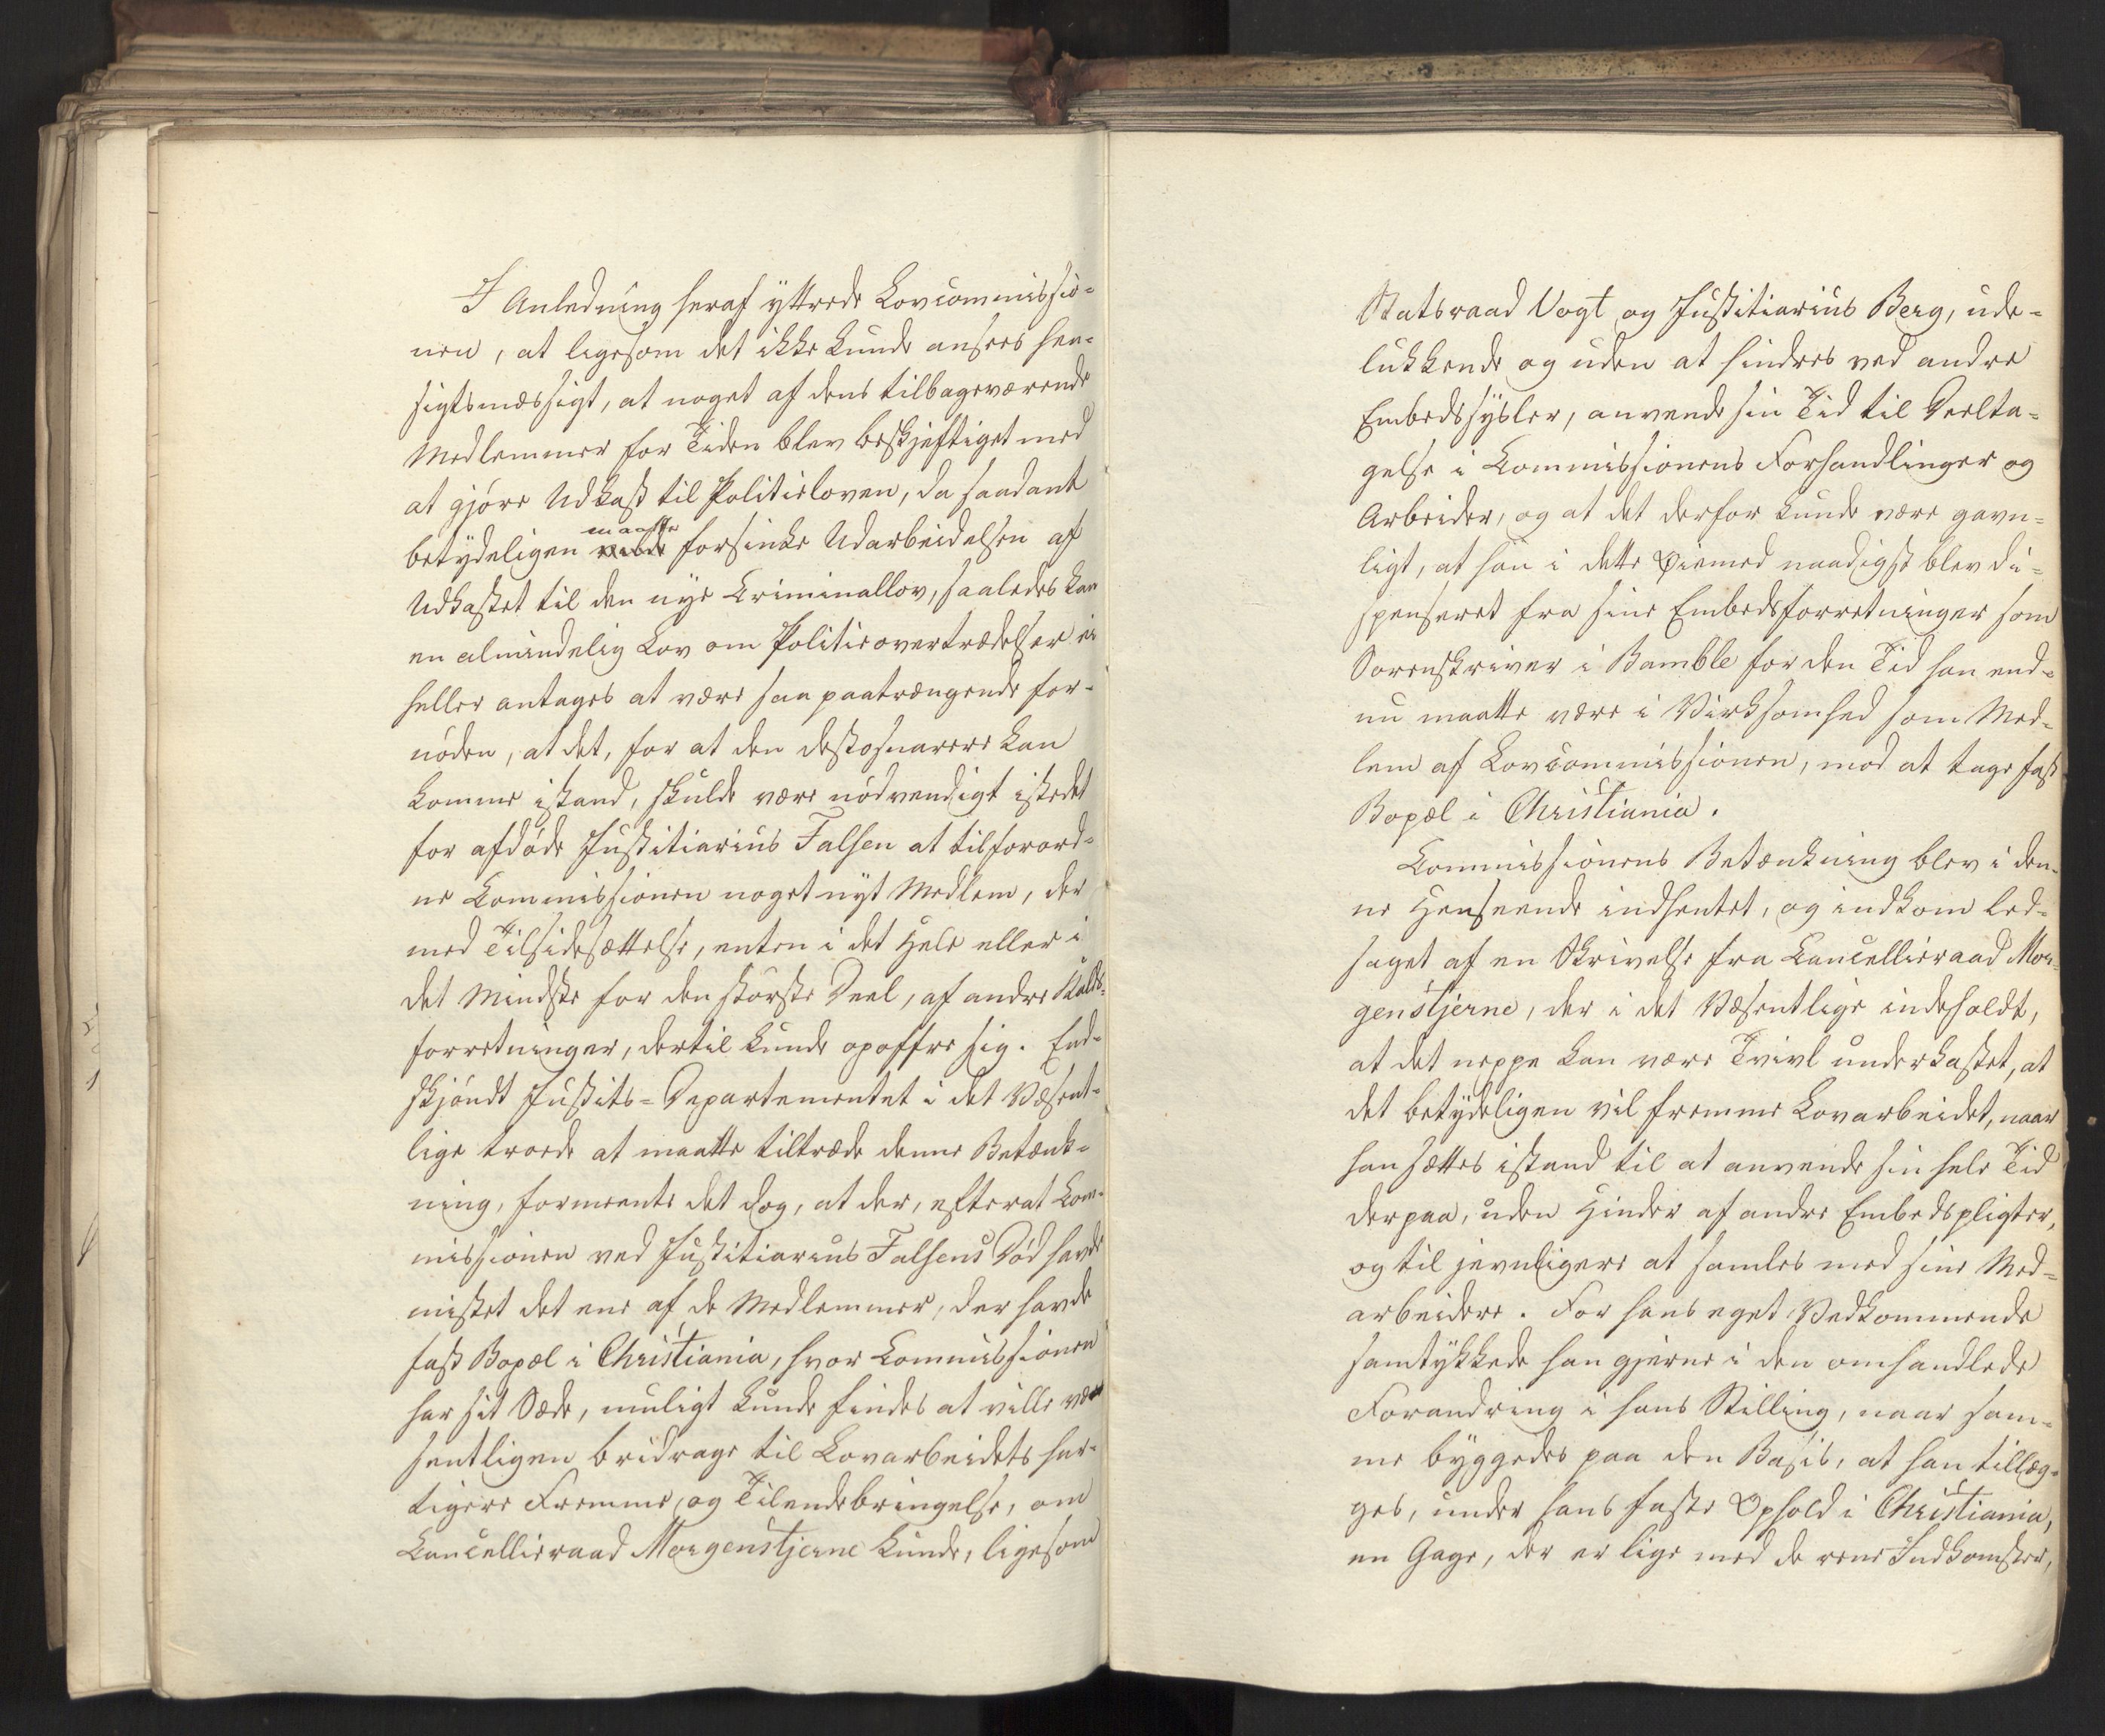 I Anledning heraf yttrede Lovcommissio-
nen, at ligesom det ikke kunde ansees hen-
sigtsmæssigt, at noget af dens tilbageværende
Medlemmer for Tiden blev beskjeftiget med
at gjöre Udkast til Politieloven, da saadant
maatte
betydeligen vilde forsinke Udarbeidelsen af
Udkastet til den nye Criminallov, saaledes kan
en almindelig Lov om Politieovertrædelser ei
heller antages at være saa paatrængende for-
nöden, at det, for at den destosnarere kan
komme istand, skulde være nödvendigt istedet
for afdöde Justitiarius Falsen at tilforord-
ne Commissionen noget nyt Medlem, der
med Tilsidesættelse, enten i det Hele eller i
det Mindste for den störste Deel, af andre Kalds-
forretninger, dertil kunde opoffre sig. End-
skjöndt Justits-Departementet i det Væsent-
lige troede at maatte tiltræde denne Betænk-
ning, formeente det dog, at der, efterat Com-
missionen ved Justitiarius Falsens Död havde
mistet det ene af de Medlemmer, der havde
fast Bopæl i Christiania, hvor Commissionen
har sit Sæde, muligt kunde findes at ville væ-
sentligen bridrage til Lovarbeidets hur-
tigere Fremme, og Tilendebringelse, om
Cancellieraad Morgenstjerne kunde, ligesom
Statsraad Vogt og Justitiarius Berg, ude-
lukkende og uden at hindres ved andre
Embedssysler, anvende sin Tid til Deelta-
gelse i Commissionens Forhandlinger og
Arbeider, og at det derfor kunde være gavn-
ligt, at han i dette Øiemed naadigst blev di-
spenseret fra sine Embedsforretninger som
Sorenskriver i Bamble for den Tid han end-
nu maatte være i Virksomhed som Med-
lem af Lovcommissionen, mod at tage fast
Bopæl i Christiania.
Commissionens Betænkning blev i den-
ne Henseende indhentet, og indkom led-
saget af en Skrivelse fra Cancellieraad Mor-
genstjerne, der i det Væsentlige indeholdt,
at det neppe kan være Tvivl underkastet, at
det betydeligen vil fremme Lovarbeidet, naar
han sættes istand til at anvende sin hele Tid
derpaa, uden Hinder af andre Embedspligter,
og til jevnligere at samles med sine Med-
arbeidere. For hans eget Vedkommende
samtykkede han gjerne i den omhandlede
Forandring i hans Stilling, naar sam-
me byggedes paa den Basis, at han tillæg-
ges, under hans faste Ophold i Christiania,
en Gage, der er lige med de rene Indkomster,